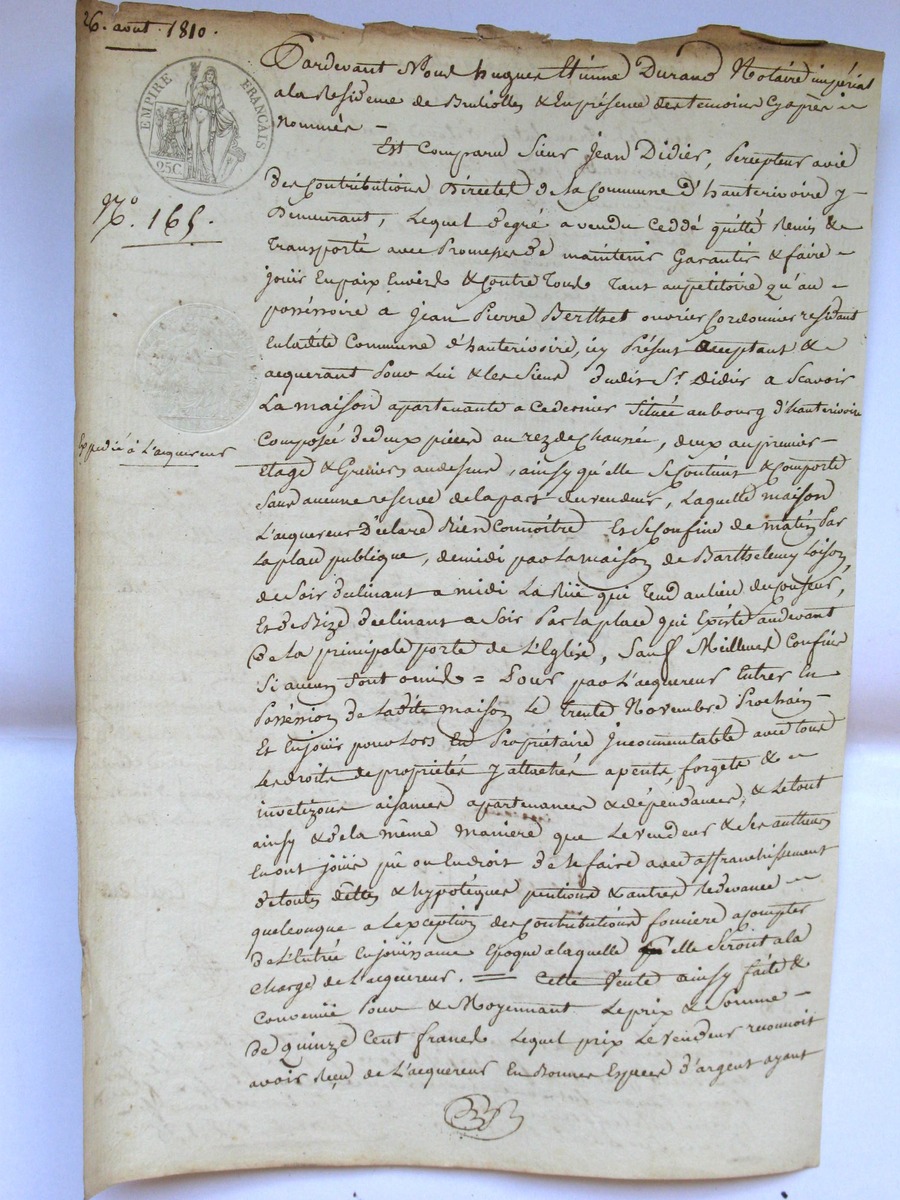 26. aout 1810.
EMPIRE FRANÇAIS
25C.
N.o 165.
Expedié à L'acquereur
Pardevant Nous hugues Etienne Durand Notaire impérial
a la Residence de Brullolles & En présence des temoins Cyaprès
Nommés
Est Comparu Sieur Jean Didier, Percepteur a vie
Des Contributions Directes de la Commune D'hauterivoire y
Demeurant, Lequel de gré a vendu Ceddé quitté Remis &
Transporté avec Promesse de maintenir Garantir & faire
jouir En paix Envers & Contre Tous Tant au petitoire qu'au
possessoire a Jean Pierre Berthet ouvrier Cordonnier residant
En ladite Commune d'hauterivoire, icy Présent acceptant &
acquerant Pour Lui & les Siens dudit Sr. Didier a Scavoir
La maison apartenante a Ce dernier Située au bourg d'hauterivoire
Composée de deux pièces au rez de Chaussée, deux au premier
Etage & Greniers au dessus, ainsy qu'elle Se Contient & Comporte
Sans aucune reserve de la part du vendeur, Laquelle maison
L'acquereur Déclare Bien Connoître Et Se Confine de matin Par
La place publique, de midi par La maison de Barthelemy Loison,
de Soir declinant a midi La Rue qui Tend au lieu du
Et de Bize declinant a Soir Par la place qui Existe au devant
De La principale porte de L'Eglise, Sauf Meilleurs Confins
Si aucuns Sont omis = Pour par L'acquereur Entrer En
Possession de Ladite maison Le trente Novembre Prochain
Et En jouir pour Lors En Propriétaire Incommutable avec tous
Les droits de propriétés y attachés apents, forgets &
invetizons aisances apartenances & dépendances, & Le tout
ainsy & de la même manière que Le vendeur & Ses autheurs
En ont joüi pû ou En droit de le faire avec affranchissement
de toutes dettes & hypotéques pentions & autres Redevance
quelconque a L'exception des Contributions foncière a Compter
de L'Entrée En joüissance Epoque a laquelle elle Seront a la
Charge de L'acquereur. = Cette Vente ainsy faite &
Convenüe Pour & Moyennant Le prix & Somme
De quinze Cent francs Lequel prix Le vendeur reconnoit
avoir Reçu de L'acquereur En Bonnes Especes d'argent ayant